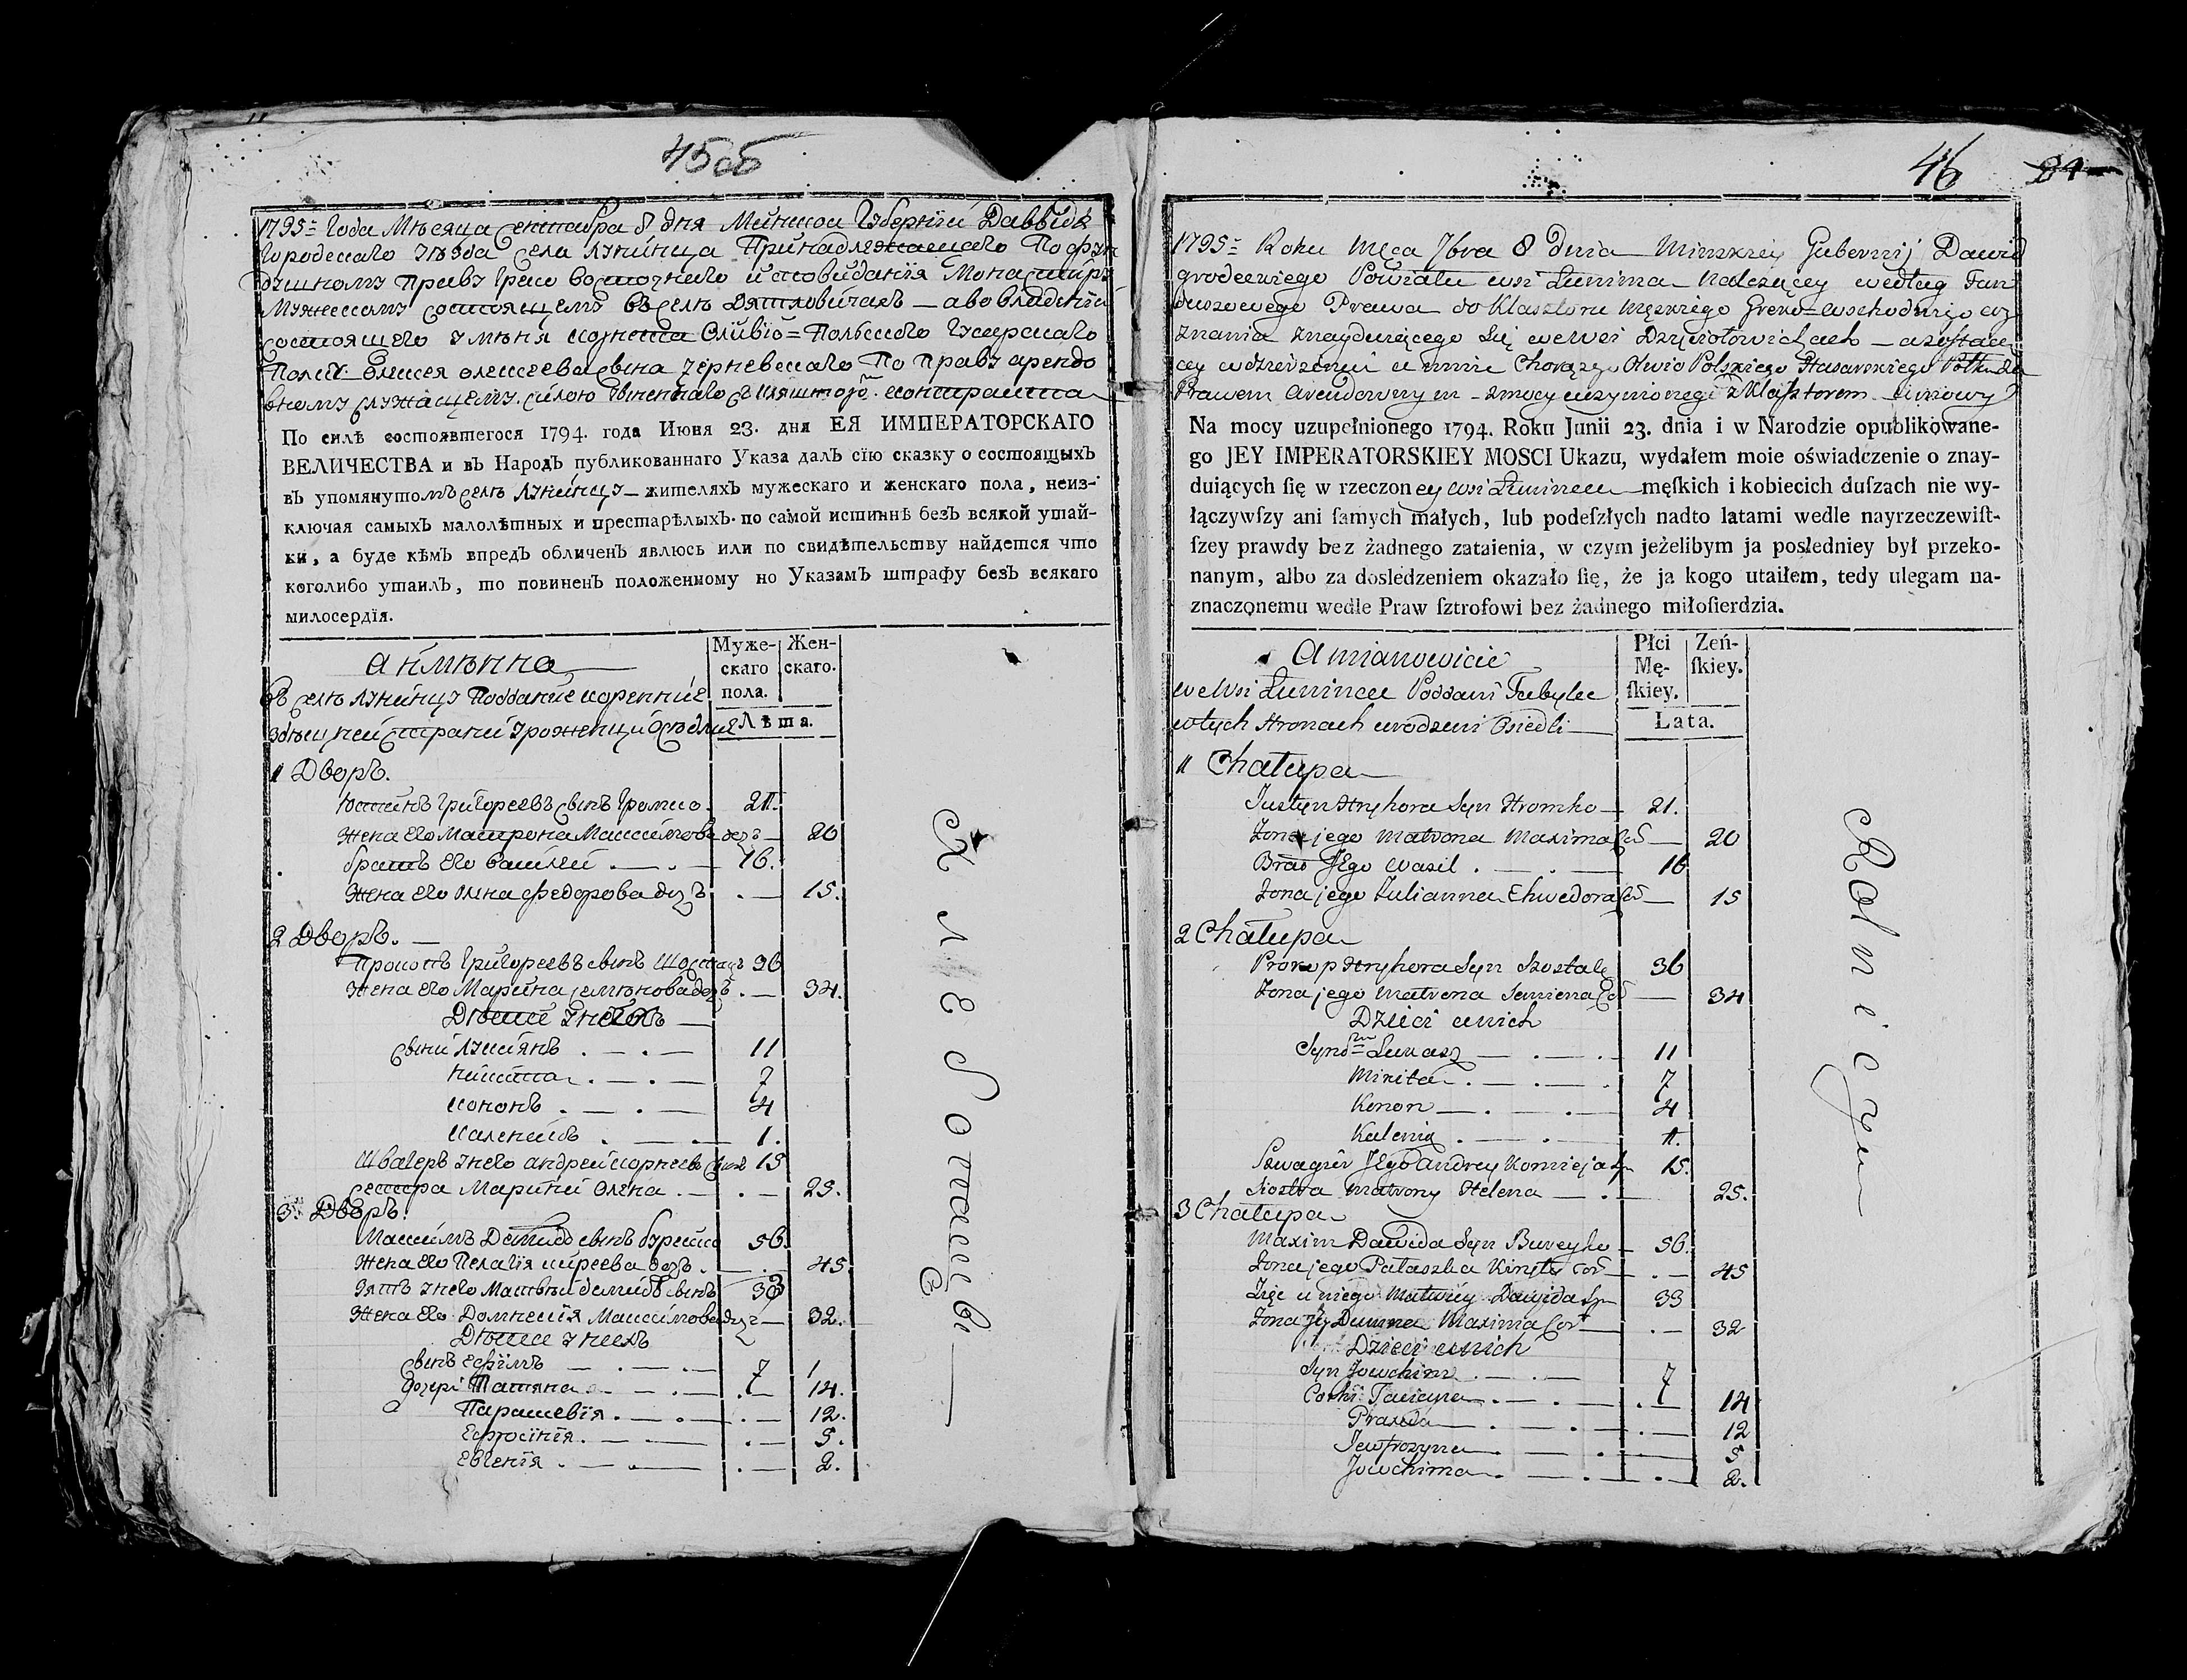 45об
1795= Года Мѣсяца Сентабра 8 дня Минской Губернїи Давыдъ
Городскаго Уѣзда Села Лунинца Принадлежащаго По фун
душному Праву Греко восточнаго исповиданїя Монастиру
Мужескому Состоящему въ селѣ Дятловичахъ — а во владенїи
состоящего у мѣня корнета Оливіо=Польского Гусарскаго
Полку Олексея Олексеева сына Черневскаго По праву арендо
вному служащему, силою
По силѣ состоявшегося 1794. года Июня 23. дня ЕЯ ИМПЕРАТОРСКАГО
ВЕЛИЧЕСТВА и въ Народъ публикованнаго Указа далъ сїю сказку о состоящыхъ
въ упомянутомъ селѣ Лунинцу — жителяхъ мужескаго и женскаго пола, неиз-
ключая самыхъ малолѣтныхъ и престарѣлыхъ. по самой истиннѣ безъ всякой утай-
ки, а буде кѣмъ впредъ обличенъ явлюсь или по свидѣтельству найдется что
коголибо утаилъ, то повиненъ положенному по Указамъ штрафу безъ всякаго
милосердїя.
а имѣнно
Муже-скаго пола.
Жен-скаго.
въ селѣ Лунинцу Подданіе кореннїе
здѣшней страни урожени и Осѣдлие
Лѣта.
1 Дворъ.
Юстинъ Григореевъ сынъ Громко. 21.
Жена Его Матрона Максимова дочъ — 20
братъ Его Василей . — . — 16.
Жена Его Олена Федорова дочъ . — 15.
2 Дворъ. —
Прокопъ Григореевъ сынъ Шостакъ 36
Жена Его Марина Семѣнова дочъ . — 34.
Дѣти У него —
сыни Лукіянъ . — . — 11
Никита . — . — 7
Кононъ . — . — 4
Каленикъ . — . — 1.
Швагеръ Унего Андрей Корнеевъ сынъ 15
сестра Марини Олена . — . — 25.
3. Дворъ.
Максимъ Давидовъ сынъ Бурейко 56.
Жена Его Пелагїя Киреева дочъ . — 45
Зять Унего Матвѣй Демидовъ сынъ 33
Жена Его Домникїя Максимова дочъ — 32.
Дѣти У нехъ
сынъ Ефимъ — . — . — 7
Дочери Татяна . — . — . — 14.
Параскевїя . — . — . — 12.
Ефросинїя . — . — 5.
Евгенїя . — . — 2.
К Л Е
46 84
1795= Roku Męca 7bra 8 dnia Minskiey Gubernij Dawid
grodeckiego Powiatu wsi Łunina należącey według Fun
duszowego Prawa do Klasztoru Męskiego Greko=wschodniego wy
znania znayduiącego się we wsi Dzięciołowiczach — a zostaią
cey w dzierżeniu u mnie Chorązego Olwio Polskiego Husarskiego Półku
Prawem arendownym — z mocy uczynioney z Klasztorem umowy
Na mocy uzupełnionego 1794. Roku Junii 23. dnia i w Narodzie opublikowane-
go JEY IMPERATORSKIEY MOSCI Ukazu, wydałem moie oświadczenie o znay-
duiących ſię w rzeczoney wsi Łunincu — męſkich i kobiecich duſzach nie wy-
łączywſzy ani ſamych małych, lub podeſzłych nadto latami wedle nayrzeczewiſt-
ſzey prawdy bez żadnego zataienia, w czym jeżelibym ja posledniey był przeko-
nanym, albo za dosledzeniem okazało ſię, że ja kogo utaiłem, tedy ulegam na-
znaczonemu wedle Praw ſztrofowi bez żadnego miłoſierdzia.
a mianowicie
Płci Mę-ſkiey.
Zeń-ſkiey.
we wsi Łunincu Poddani Tubylce
w tych stronach urodzeni Osiedli —
Lata.
1 Chałupa
Justyn Hryhora Syn Hromko — 21.
Zona jego Matrona Maxima Cor — 20
Brat Jego Wasil . — . — 16
Zona jego Julianna Chwedora Cor — 15
2 Chałupa
Prokop Hryhora Syn Szostak 36
Zona jego Matrona Semiena Cor — 34
Dzieci u nich
Synowie Łukasz — . — . 11
Mikita . — . — . 7
Konon — . — . 4
Kalenig . — . — 1.
Szwagier Jego Andrey Kornieja Syn 15.
Siostra Matrony Helena — . 25.
3 Chałupa
Maxim Dawida Syn Bureyko — 56.
Zona jego Pałaszka Kiryła Cor — . — 45
Zięc u niego Matwiey Dawida Syn 33
Zona Jego Dumna Maxima Cor — . — 32
Dzieci u nich
Syn Jowchim . — . — 7
Corki Taciana . — . — . — 14
Praxeda — . — . — 12
Jewfrozyna . — . — 5
Jowchima . — . — . — 2.